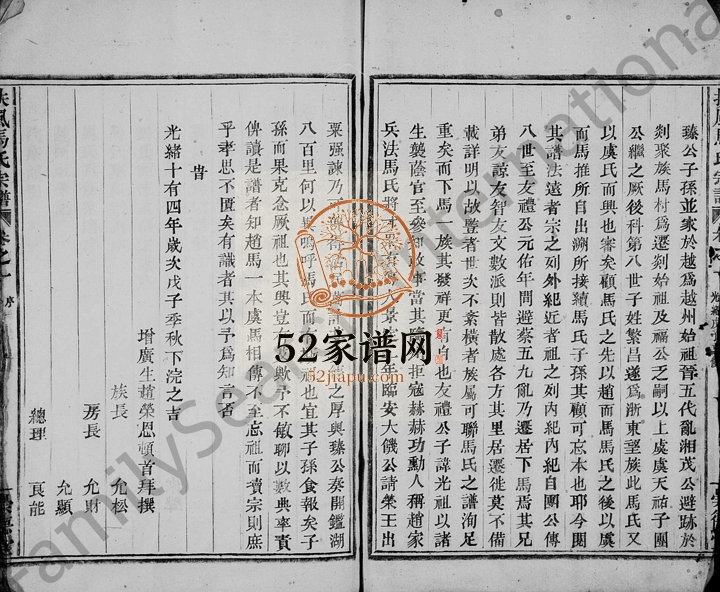 臻公子孫並家於越爲越州始祖晉五代亂湘茂公避跡於
剡聚族馬村爲遷剡始祖及福公之嗣以上虞虞天祐子團
公繼之厥後科第八世子姓繁昌遂爲浙東望族此馬氏又
以虞氏而興也審矣顧馬氏之先以趙而馬馬氏之後以虞
而馬推所自出溯所接續馬氏子孫其顧可忘本也耶今閱
其譜法遠者宗之列外紀近者祖之列內紀內紀自團公傳
八世至友禮公元佑年間避蔡五九亂乃遷居下馬焉其兄
弟友諒友智友文數派則皆散處各方其里居遷徙莫不備
載詳明以故豎著世次不紊橫者族屬可聯馬氏之譜洵足
重矣而下馬一族其發祥更有自也友禮公子諱光祖以諸
生襲蔭官至參知政事當其 拒寇赫赫功勳人稱趙家
兵法馬氏將 景 年臨安大饑公請榮王出
粟强諫乃 得 之厚與臻公奏開鑑湖
八百里何以異 嗚呼馬氏而 也宜其子孫食報矣子
孫而果克念厥祖也其興豈 歟予不敏聊以數典率賣
俾讀是譜者知趙馬一本虞馬相傳不至忘祖而瀆宗則庶
乎孝思不匱矣有識者其以予爲知言否
旹
光緒十有四年歲次戊子季秋下浣之吉
增廣生趙榮恩頓首拜撰
族長 允松
房長 允財
允顯
總理 良能
扶風馬氏宗譜
卷之一
序
52家谱网
52jiapu.com
FamilySearch International